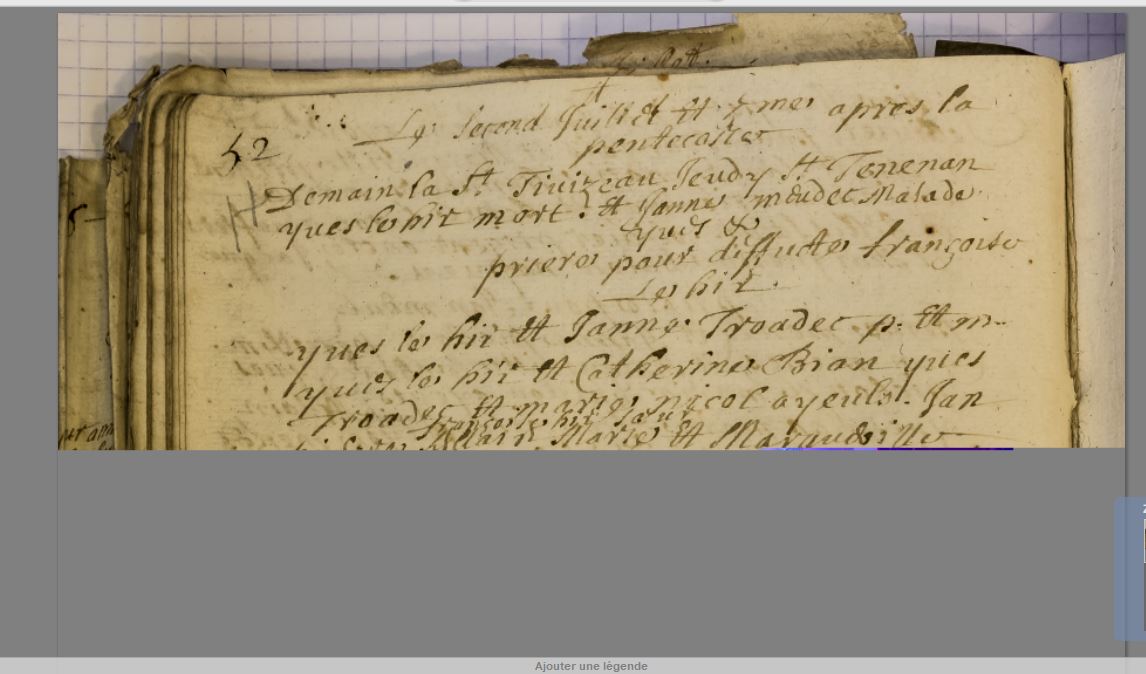 juillet.
52
Le second Juillet et 7me apres la
pentecoste
Demain la St Tivizeau Jeudy St Tenenan
yves le hir mort. et Janne meudec Malade
yves &
priere pour diffucte françoise
Le hir.
yves le hir et Janne Troadec p. et m.
yves le hir et Catherine Bian yves
Troadec et marie nicol ayeuls. Jan
françoise le hir
Allain Marie et Margueritte
Ajouter une légende